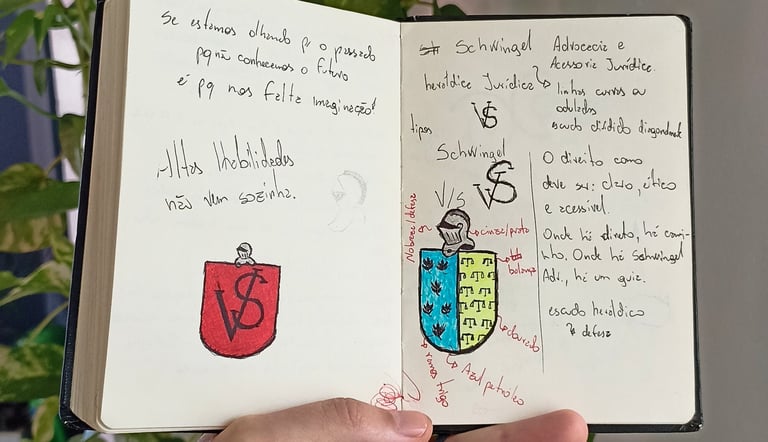 Se estamos olhando p/ o passado
pq não conhecemos o futuro
é pq nos falta imaginação!
Altas Habilidades
não vem sozinha.
VS
Schwingel Advocacia e
Acessoria Jurídica.
heráldica Jurídica
linhas curvas ou
oduladas
escudo dividido
VS
tipos
Schwingel
V/S VS
O direito como
deve ser: claro, ético
e acessível.
Onde há direito, há cami-
nho. Onde há Schwingel
Adv., há um guia.
escudo heráldico
defesa
Nobreza/defesa
cinza/prata
balança
dourado
Azul petroleo
ramos trigo